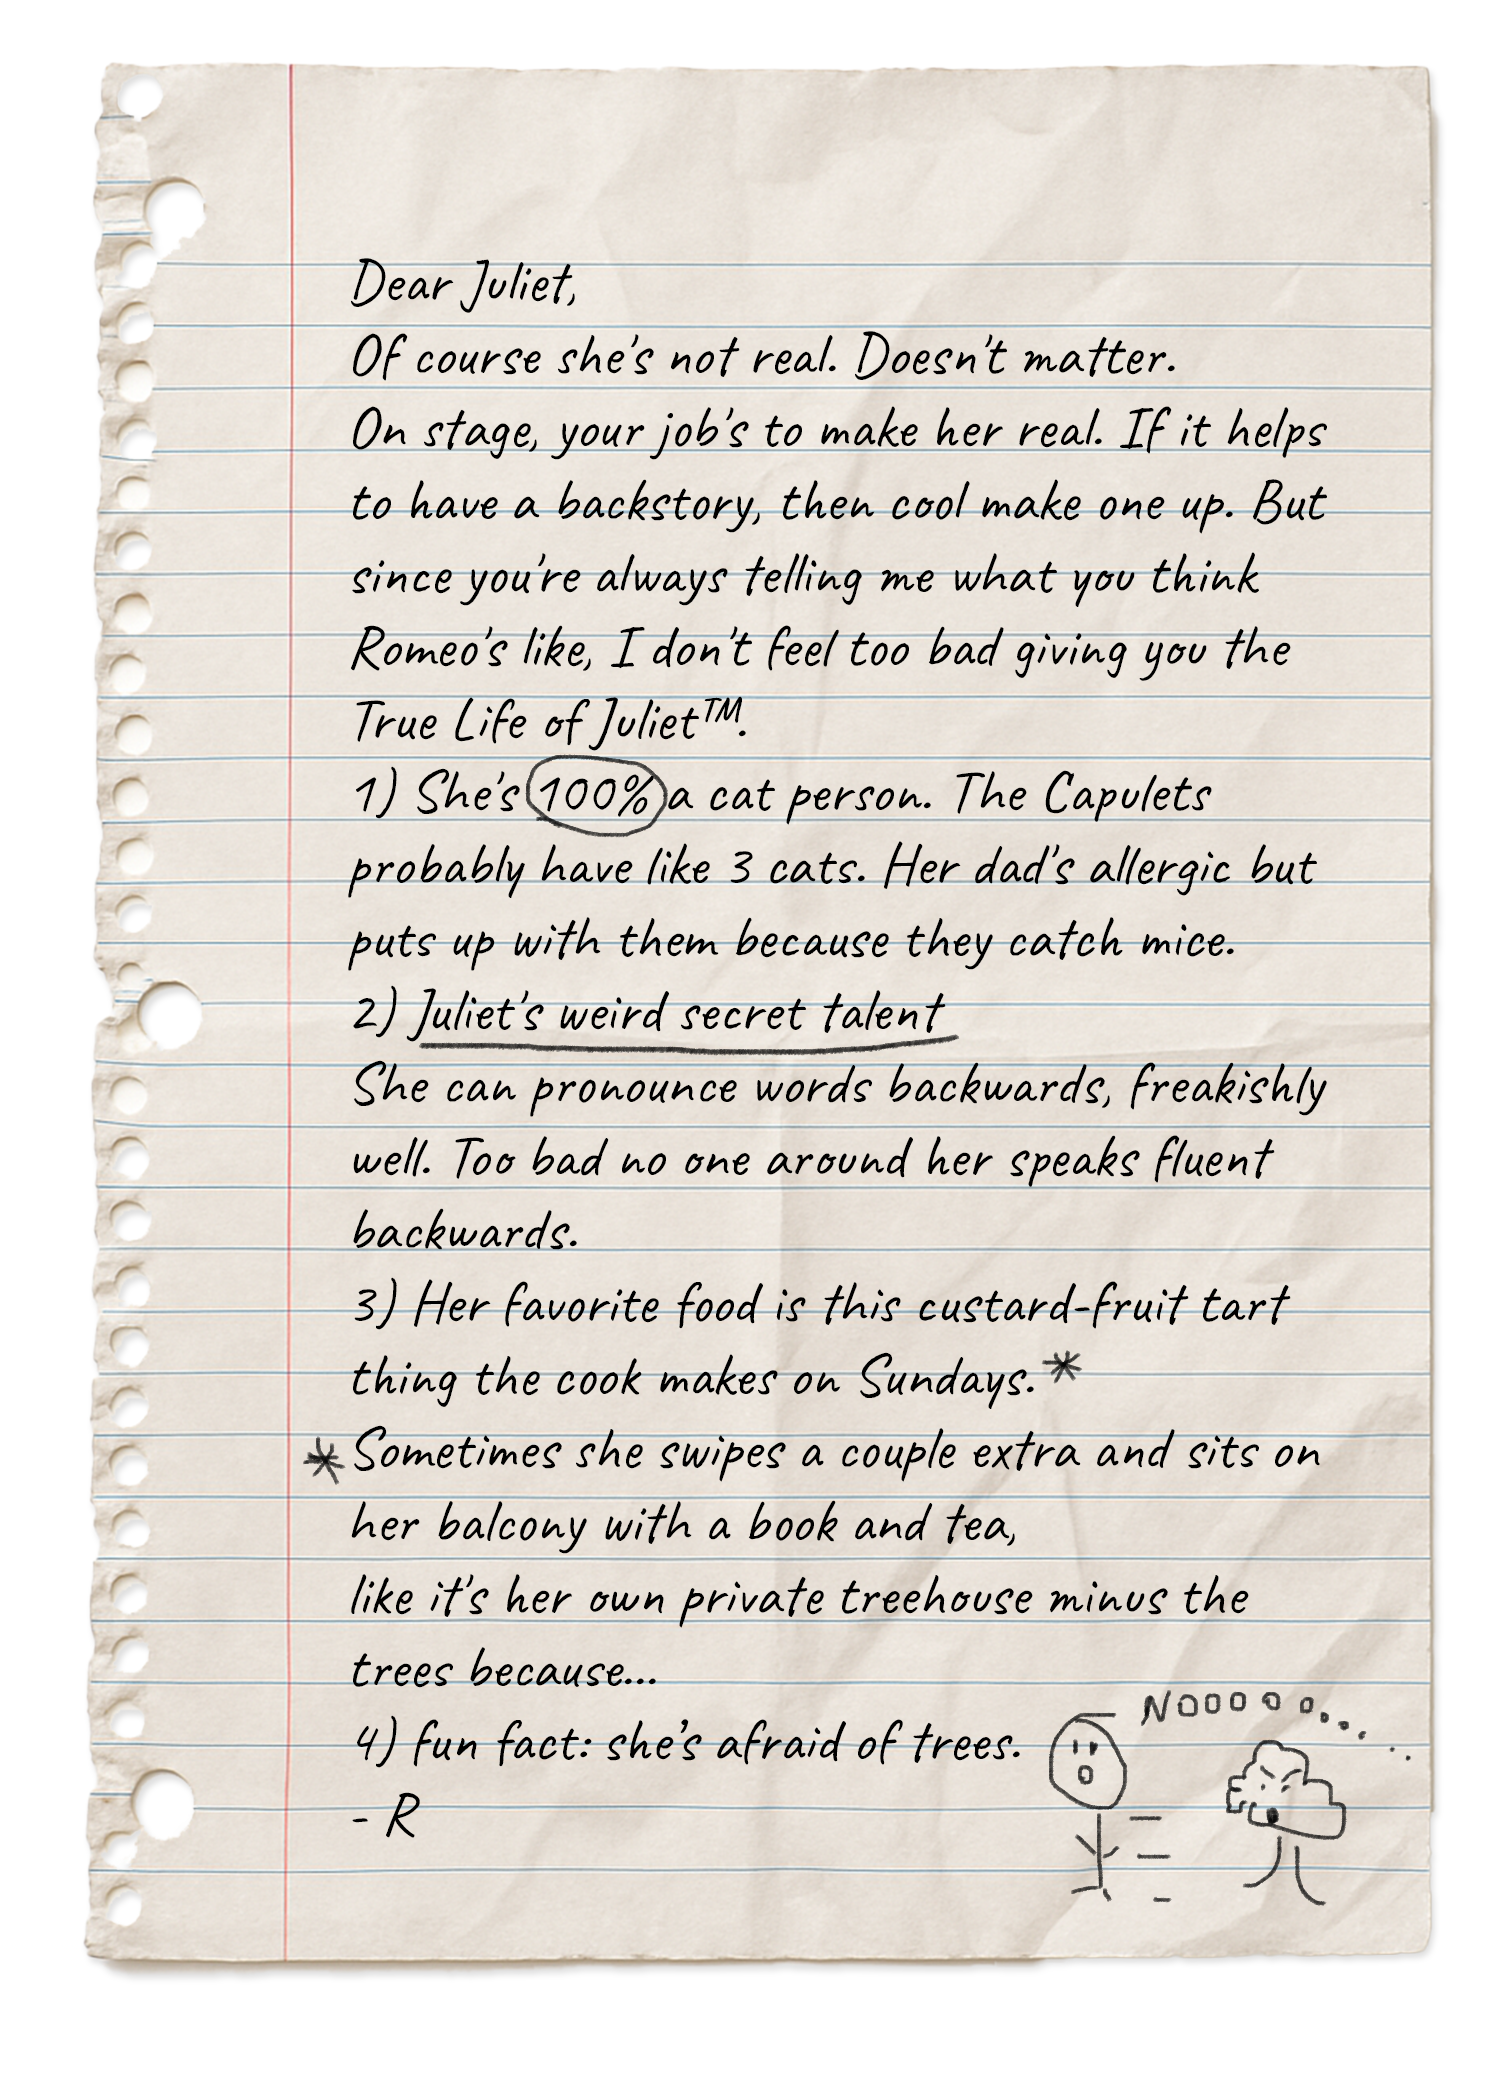 Dear Juliet,
Of course she's not real. Doesn't matter.
On stage, your job's to make her real. If it helps
to have a backstory, then cool make one up. But
since you're always telling me what you think
Romeo's like, I don't feel too bad giving you the
True Life of Juliet™.
1) She's 100% a cat person. The Capulets
probably have like 3 cats. Her dad's allergic but
puts up with them because they catch mice.
2) Juliet's weird secret talent
She can pronounce words backwards, freakishly
well. Too bad no one around her speaks fluent
backwards.
3) Her favorite food is this custard-fruit tart
thing the cook makes on Sundays.*
*Sometimes she swipes a couple extra and sits on
her balcony with a book and tea,
like it's her own private treehouse minus the
trees because...
NOOOOO.....
4) fun fact: she's afraid of trees.
- R